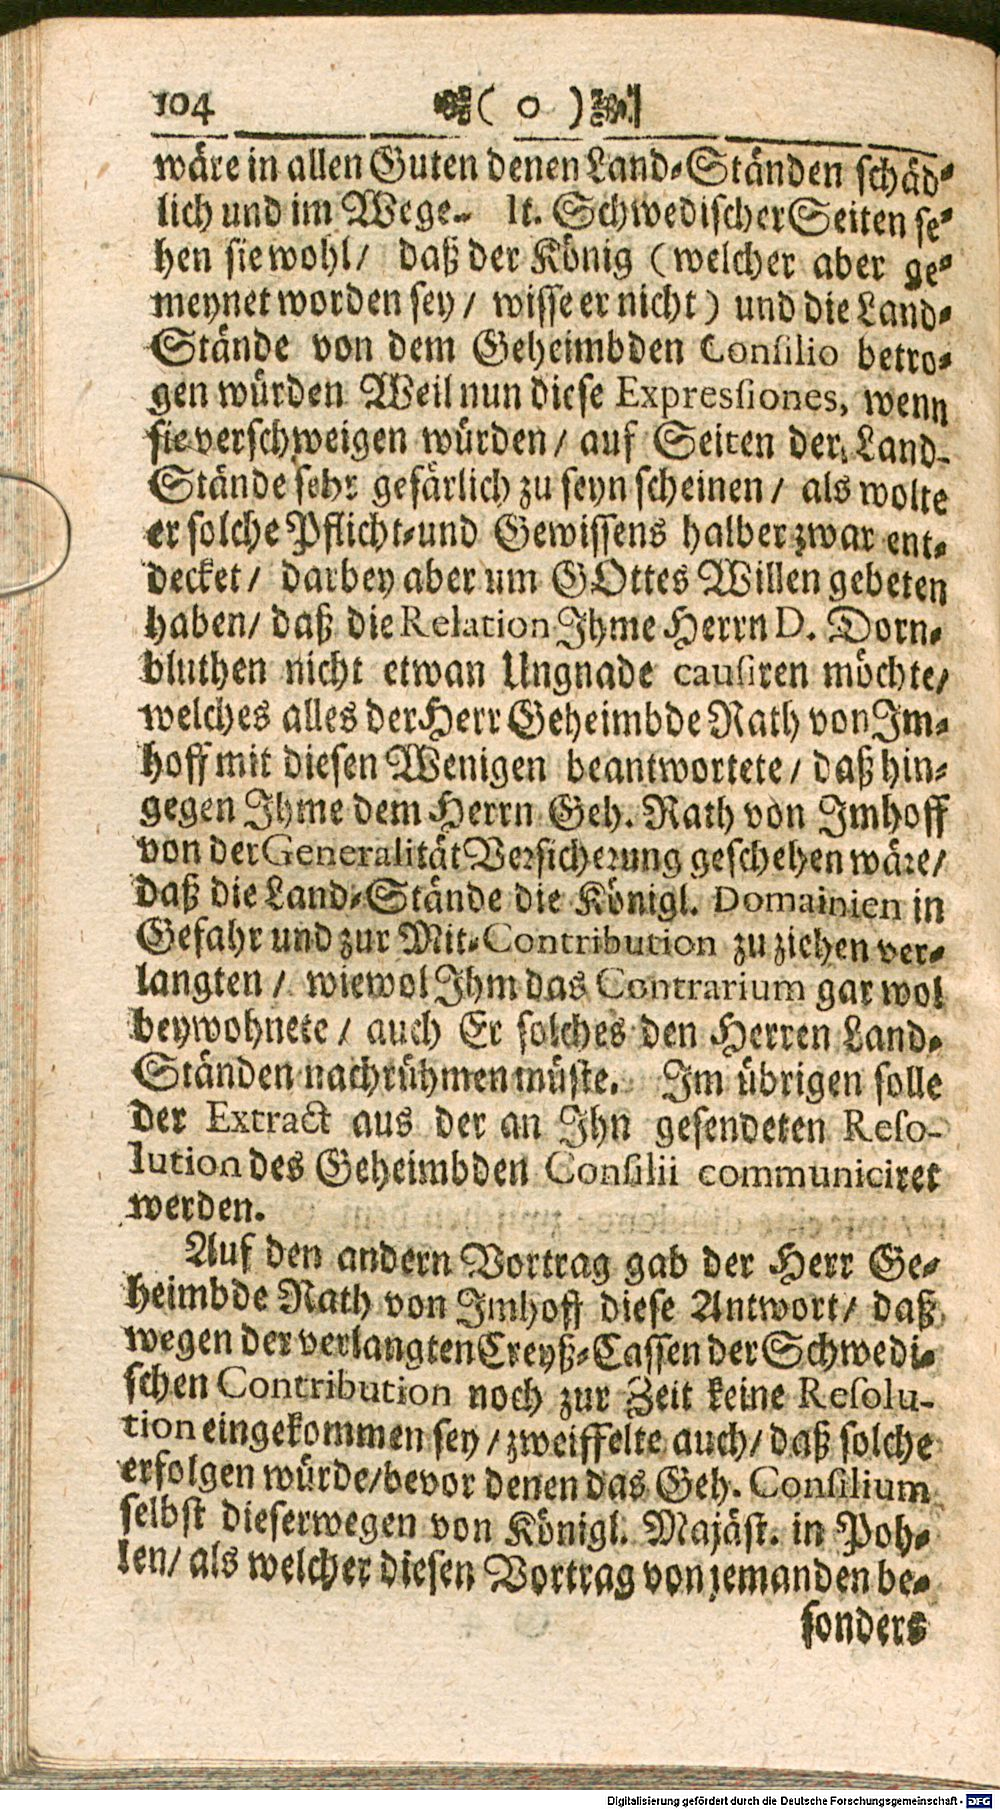 104 ( o )
wäre in allen Guten denen Land-Ständen schäd-
lich und im Wege. It. Schwedischer Seiten se-
hen sie wohl/ daß der König (welcher aber ge-
meynet worden sey/ wisse er nicht) und die Land-
Stände von dem Geheimbden Consilio betro-
gen würden Weil nun diese Expressiones, wenn
sie verschweigen würden/ auf Seiten der Land-
Stände sehr gefärlich zu seyn scheinen/ als wolte
er solche Pflicht-und Gewissens halber zwar ent-
decket/ darbey aber um GOttes Willen gebeten
haben/ daß die Relation Ihme Herrn D. Dorn-
bluthen nicht etwan Ungnade causiren möchte/
welches alles der Herr Geheimbde Rath von Im-
hoff mit diesen Wenigen beantwortete/ daß hin-
gegen Ihme dem Herrn Geh. Rath von Imhoff
von der Generalität Versicherung geschehen wäre/
daß die Land-Stände die Königl. Domainien in
Gefahr und zur Mit-Contribution zu ziehen ver-
langten/ wiewol Ihm das Contrarium gar wol
beywohnete/ auch Er solches den Herren Land-
Ständen nachrühmen müste. Im übrigen solle
der Extract aus der an Ihn gesendeten Reso-
lution des Geheimbden Consilii communiciret
werden.
Auf den andern Vortrag gab der Herr Ge-
heimbde Rath von Imhoff diese Antwort/ daß
wegen der verlangten Creyß-Cassen der Schwedi-
schen Contribution noch zur Zeit keine Resolu-
tion eingekommen sey/ zweiffelte auch/ daß solche
erfolgen würde/ bevor denen das Geh. Consilium
selbst dieserwegen von Königl. Majäst. in Poh-
len/ als welcher diesen Vortrag von jemanden be-
sonders
Digitalisierung gefördert durch die Deutsche Forschungsgemeinschaft - DFG